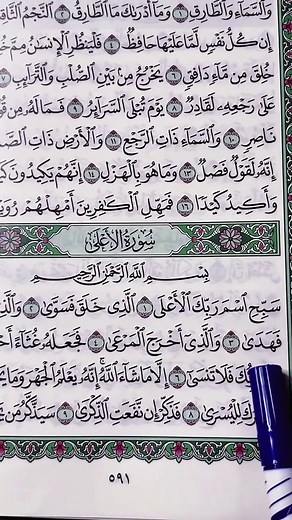 وَالسَّمَاءِ وَالطَّارِقِ ١ وَمَا أَدْرَىٰكَ مَا الطَّارِقُ ٢ النَّجْمُ الثَّاقِبُ
إِن كُلُّ نَفْسٍ لَّمَّا عَلَيْهَا حَافِظٌ ٤ فَلْيَنظُرِ الْإِنسَٰنُ مِمَّ
خُلِقَ مِن مَّاءٍ دَافِقٍ ٦ يَخْرُجُ مِنۢ بَيْنِ الصُّلْبِ وَالتَّرَائِبِ ٧
عَلَىٰ رَجْعِهِۦ لَقَادِرٌ ٨ يَوْمَ تُبْلَى السَّرَائِرُ ٩ فَمَا لَهُۥ مِن
نَاصِرٍ ١٠ وَالسَّمَاءِ ذَاتِ الرَّجْعِ ١١ وَالْأَرْضِ ذَاتِ
إِنَّهُۥ لَقَوْلٌ فَصْلٌ ١٣ وَمَا هُوَ بِالْهَزْلِ ١٤ إِنَّهُمْ يَكِيدُونَ
وَأَكِيدُ كَيْدًا ١٦ فَمَهِّلِ الْكَٰفِرِينَ أَمْهِلْهُمْ
سُورَةُ الْأَعْلَىٰ
بِسْمِ اللَّهِ الرَّحْمَٰنِ الرَّحِيمِ
سَبِّحِ اسْمَ رَبِّكَ الْأَعْلَى ١ الَّذِي خَلَقَ فَسَوَّىٰ ٢ وَالَّذِي
فَهَدَىٰ ٣ وَالَّذِي أَخْرَجَ الْمَرْعَىٰ ٤ فَجَعَلَهُۥ غُثَاءً
فَلَا تَنسَىٰ ٦ إِلَّا مَا شَاءَ اللَّهُ إِنَّهُۥ يَعْلَمُ الْجَهْرَ وَمَا
لِلْيُسْرَىٰ ٨ فَذَكِّرْ إِن نَّفَعَتِ الذِّكْرَىٰ ٩ سَيَذَّكَّرُ مَن
٥٩١